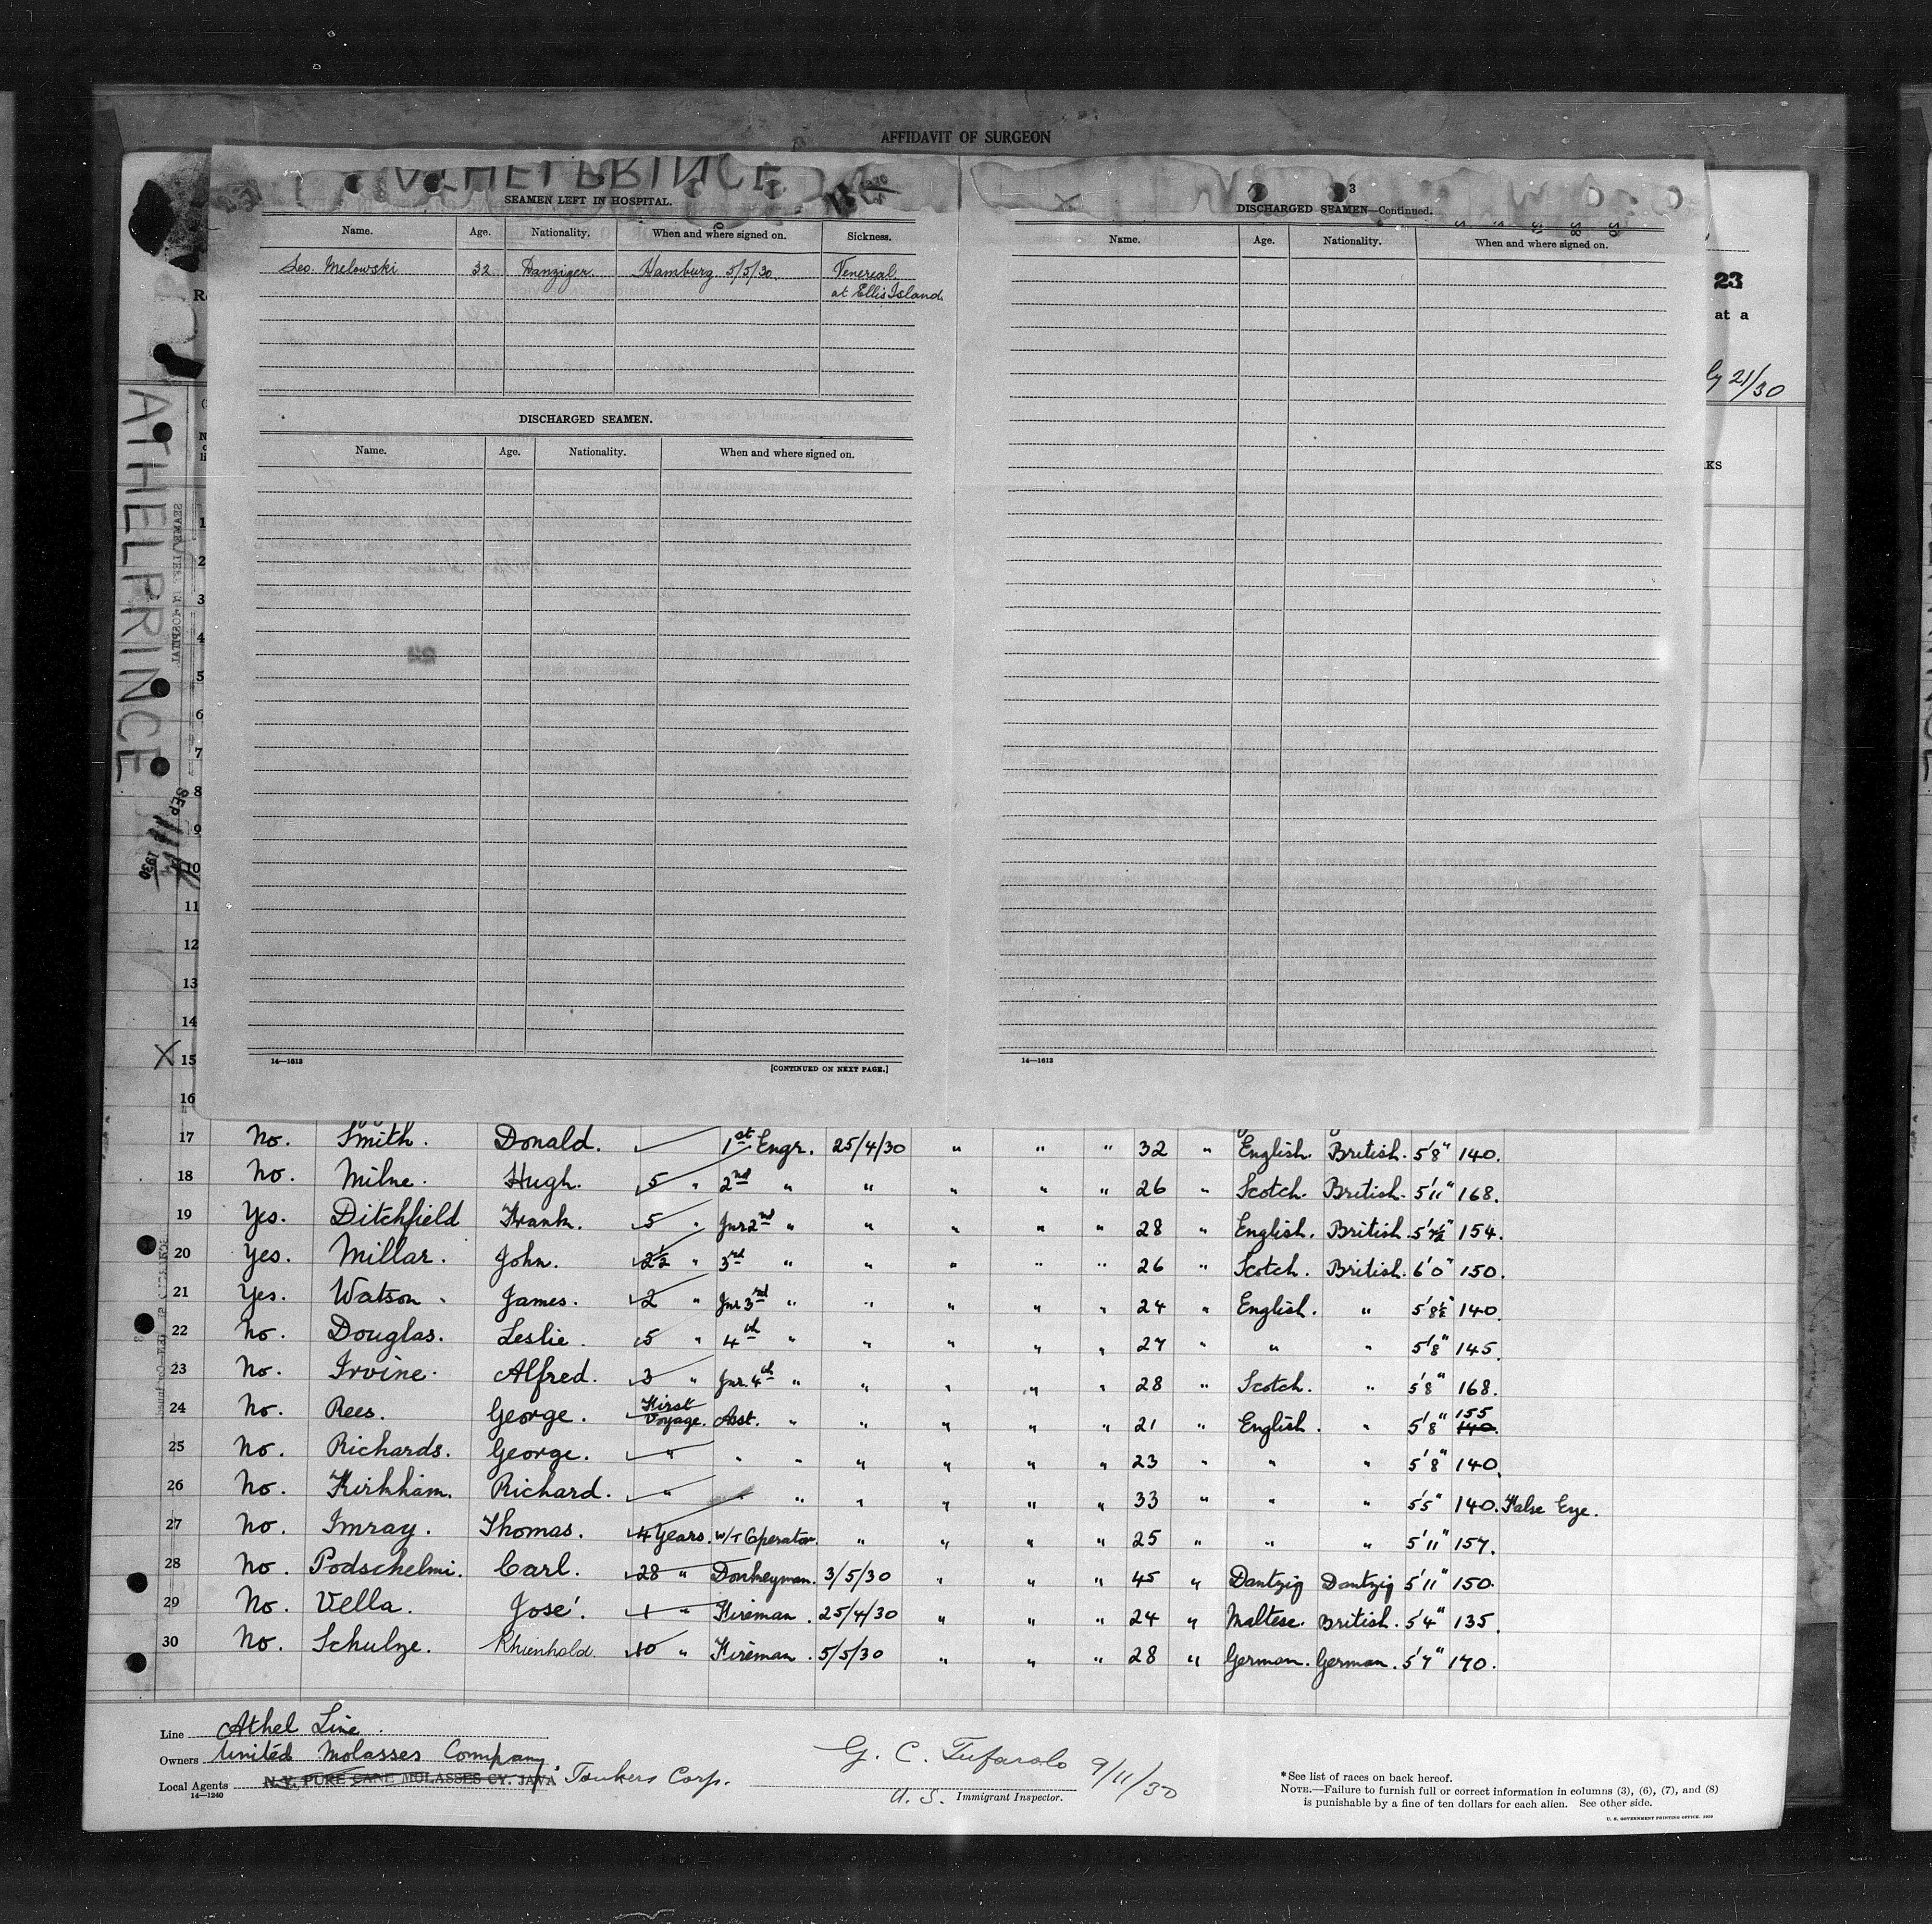 AFFIDAVIT OF SURGEON
ATHELPRINCE
SEAMEN LEFT IN HOSPITAL.
Name. Age. Nationality. When and where signed on. Sickness.
Leo. Melowski 32 Danziger. Hamburg 5/5/30. Venereal.
at Ellis Island.
DISCHARGED SEAMEN.
Name. Age. Nationality. When and where signed on.
14—1613
[CONTINUED ON NEXT PAGE.]
3
DISCHARGED SEAMEN—Continued.
Name. Age. Nationality. When and where signed on.
14—1613
23
at a
ly 21/30
KS
ATHELPRINCE
SEP 11 1930
1
2
3
4
5
6
7
8
9
10
11
12
13
14
X 15
16
17 No. Smith. Donald. 1st Engr. 25/4/30 " " " 32 " English. British. 5'8" 140.
18 No. Milne. Hugh. 5 " 2nd " " " " " 26 " Scotch. British. 5'11" 168.
19 Yes. Ditchfield Frank. 5 " Jnr 2nd " " " " " 28 " English. British. 5'7½" 154.
20 Yes. Millar. John. 2½ " 3rd " " " " " 26 " Scotch. British. 6'0" 150.
21 Yes. Watson. James. 2 " Jnr 3rd " " " " " 24 " English. " 5'8½" 140.
22 No. Douglas. Leslie. 5 " 4th " " " " " 27 " " " 5'8" 145.
23 No. Irvine. Alfred. 3 " Jnr. 4th " " " " " 28 " Scotch. " 5'8" 168.
24 No. Rees. George. First Voyage. Asst. " " " " " 21 " English. " 5'8" 155 140.
25 No. Richards. George. " " " " " " " 23 " " " 5'8" 140.
26 No. Kirkham. Richard. " " " " " " " 33 " " " 5'5" 140. False Eye.
27 No. Imray. Thomas. 4 years. W/T Operator. " " " " 25 " " " 5'11" 157.
28 No. Podschelmi. Carl. 28 " Donkeyman. 3/5/30 " " " 45 " Dantzig Dantzig 5'11" 150.
29 No. Vella. José. 1 " Fireman. 25/4/30 " " " 24 " Maltese. British. 5'4" 135.
30 No. Schulze. Rhienhold. 10 " Fireman. 5/5/30 " " " 28 " German. German. 5'7" 170.
Line Athel Line.
Owners United Molasses Company
Local Agents N.Y. PURE CANE MOLASSES CY. JAVA Tankers Corp.
14—1240
G. C. Tufarolo 9/11/30
U. S. Immigrant Inspector.
*See list of races on back hereof.
NOTE.—Failure to furnish full or correct information in columns (3), (6), (7), and (8)
is punishable by a fine of ten dollars for each alien. See other side.
U. S. GOVERNMENT PRINTING OFFICE. 1929